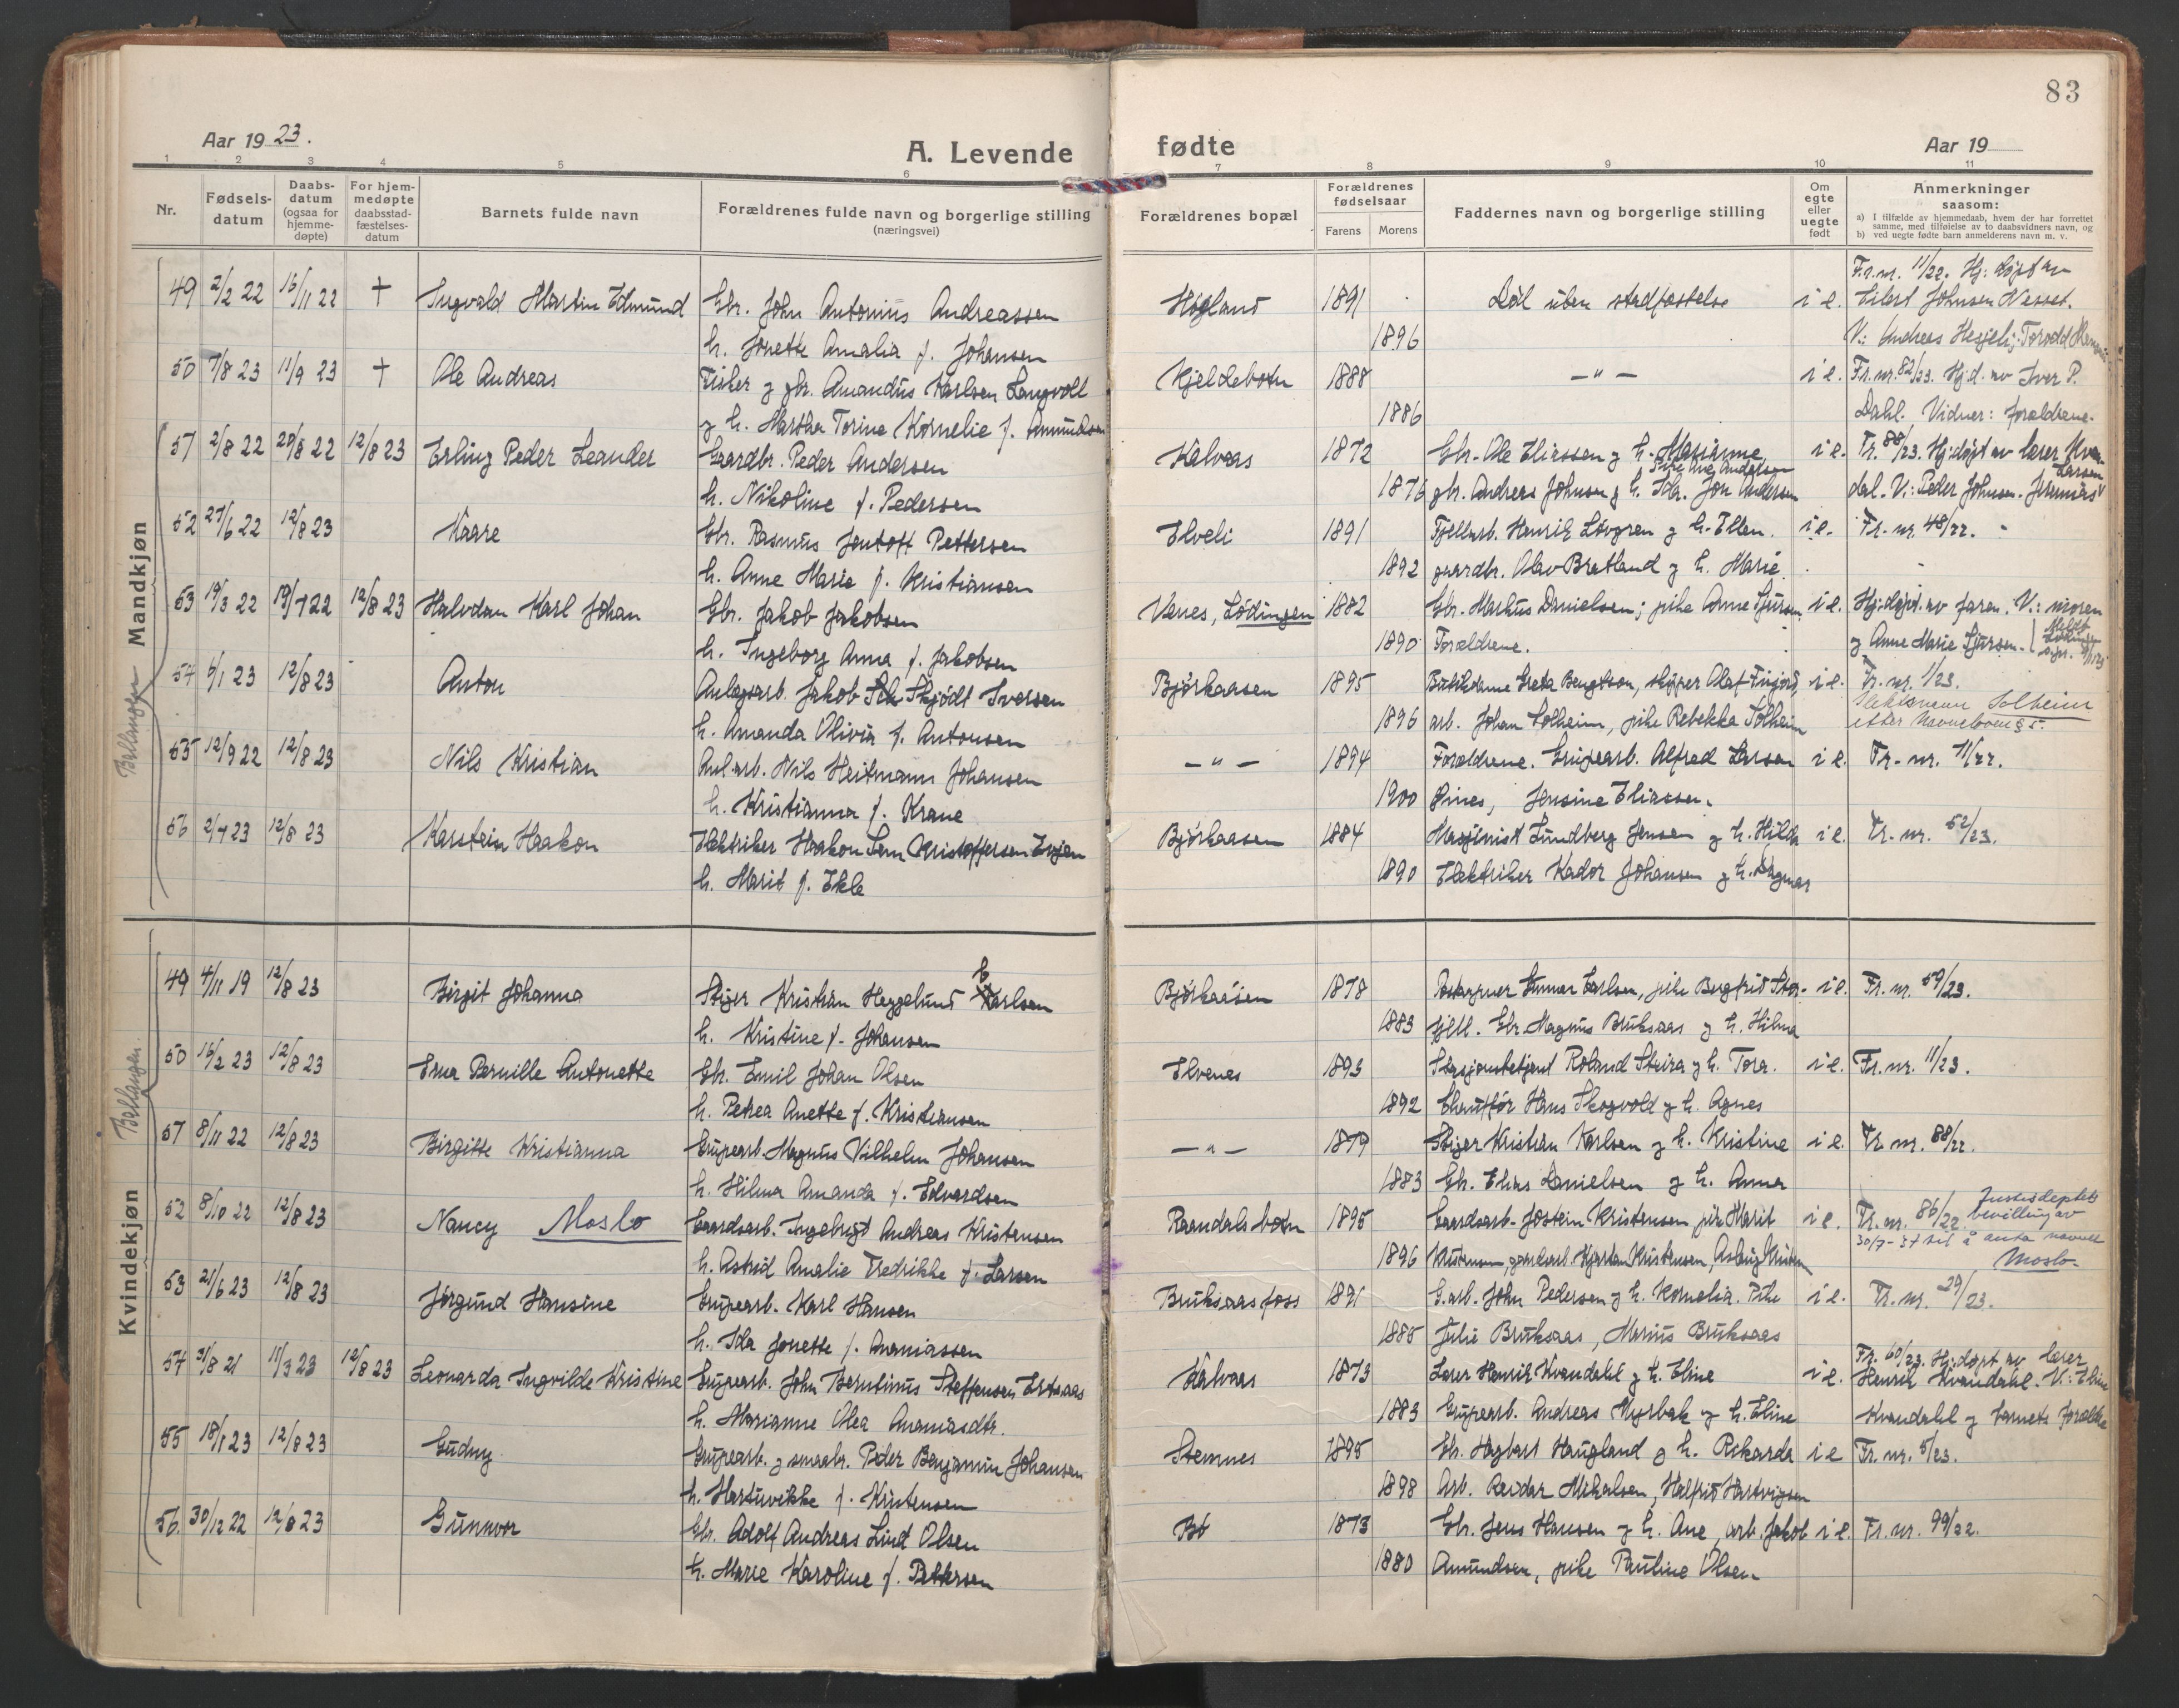 83
Aar 1923.
A. Levende
fødte
Aar 19
1 2 3 4 5 6 7 8 9 10 11
Nr.
Fødsels-datum
Daabs-datum (ogsaa for hjemme-døpte)
For hjem-medøpte daabsstad-fæstelses-datum
Barnets fulde navn
Forældrenes fulde navn og borgerlige stilling (næringsvei)
Forældrenes bopæl
Forældrenes fødselsaar
Farens
Morens
Faddernes navn og borgerlige stilling
Om egte eller uegte født
Anmerkninger saasom:
a) I tilfælde av hjemmedaab, hvem der har forrettet samme, med tilføielse av to daabsvidners navn, og
b) ved uegte fødte barn anmelderens navn m. v.
Mandkjøn
Ballangen
49 2/2 22 16/11 22 + Ingvald Martin Edmund Gbr. John Antonius Andreassen Hogland 1891 Død uten stadfæstelse i e. Fr. nr. 11/22. Hj: døpt av
Eilert Johnsen Nesset.
h. Jonette Amalia f. Johansen 1896 V.: Andreas Hesjeli; Torodd
50 7/8 23 11/9 23 + Ole Andreas Fisker g gbr. Amandus Karlsen Langvoll Kjeldebotn 1888 — " — i e. Fr. nr. 82/23. Hj.d. av Iver P.
g h. Martha Torine Kornelie f. Amundsen 1886 Dahl. Vidner: forældrene.
51 2/8 22 20/8 22 12/8 23 Erling Peder Leander Gaardbr. Peder Andersen Kalvaas 1872 Gbr. Ole Eliassen g h. Marianne, i e. Fr. 88/23. Hj:døpt av lærer Kvan-
h. Nikoline f. Pedersen 1876 gbr. Andreas Johnsen g h. Ida. Jon Andersen dal. V.: Peder Johnsen. Jeremias Larsen
52 27/6 22 12/8 23 Kaare Gbr. Rasmus Jentoft Pettersen Elveli 1891 Fjellarb. Henrik Løvgren g h. Ellen. i e. Fr. nr. 48/22.
h. Anne Marie f. Kristiansen 1892 gaardbr. Olav Bratland g h. Marie
53 19/3 22 19/7 22 12/8 23 Halvdan Karl Johan Gbr. Jakob Jakobsen Venes, Lødingen 1882 Gbr. Markus Danielsen; pike Anne Sjursen. i e. Hj:døpt. av faren. V.: moren
h. Ingeborg Anna f. Jakobsen 1890 Forældrene. g Anne Marie Sjursen.
54 6/1 23 12/8 23 Anton Anlægsarb. Jakob Skjødt Iversen Bjørkaasen 1895 Butikdame Greta Bengtson, skipper Olaf Finjord, i e. Fr. nr. 1/23.
h. Amanda Olivia f. Antonsen 1896 arb. Johan Solheim, pike Rebekka Solheim Slektsnavn Solheim
etter Navneloven § 5.
55 12/9 22 12/8 23 Nils Kristian Anl.arb. Nils Heitmann Johansen — " — 1894 Forældrene. Grupearb. Alfred Larsen i e. Fr. nr. 71/22.
h. Kristianna f. Krane 1900 Pines, Jensine Eliassen.
56 2/7 23 12/8 23 Karstein Haakon Elektriker Haakon Kristoffersen Evjen Bjørkaasen 1884 Maskinist Lundberg Jensen g h. Hilda i e. Fr. nr. 52/23.
h. Marit f. Ekle 1890 Elektriker Kador Johansen g h. Dagmar
Kvindekjøn
Ballangen.
49 4/11 19 12/8 23 Birgit Johanna Stiger Kristian Heggelund Karlsen Bjørkaasen 1878 Gunnar Carlsen, pike Bergfrid Stor- i e. Fr. nr. 59/23.
h. Kristine f. Johansen 1883 fjell. Gbr. Magnus Bruksaas g h. Hilma
50 16/2 23 12/8 23 Erna Pernille Antonette Gbr. Emil Johan Olsen Elvenes 1893 Stasjonsbetjent Roland Skeira g h. Tora. i e. Fr. nr. 11/23.
h. Petrea Anette f. Kristiansen 1892 Chauffør Hans Skogvold g h. Agnes
51 8/11 22 12/8 23 Birgitte Kristianna Grupearb. Magnus Vilhelm Johansen — " — 1879 Stiger Kristian Karlsen g h. Kristine i e. Fr. nr. 88/22.
h. Hilma Amanda f. Edvardsen 1883 Gbr. Elias Danielsen g h. Anna
52 8/10 22 12/8 23 Nancy Moslo Gaardsarb. Ingebrigt Andreas Kristensen Raandalsbotn 1895 Gaardsarb. Jostein Kristensen, pike Marit i e. Fr. nr. 86/22. Justisdeptets bevilling av
h. Astrid Amalie Fredrikke f. Larsen 1896 Kristensen, gaardsarb. Kjartan Kristensen, Aslaug Kristensen 30/7-37 til å anta navnet
Moslo
53 21/6 23 12/8 23 Jørgund Hansine Grupearb. Karl Hansen Bruksaasfoss 1891 G.arb. John Pedersen g h. Kornelia. Pike i e. Fr. nr. 29/23.
h. Ida Jonette f. Ananiassen 1885 Julie Bruksaas, Marius Bruksaas
54 31/8 21 11/3 23 12/8 23 Leonarda Ingvilde Kristine Grupearb. John Berntinus Steffensen Ertsaas Kalvaas 1873 Lærer Henrik Kvandahl g h. Eline i e. Fr. 60/23. Hj:døpt av lærer
Henrik Kvandahl. V.: Eline
h. Marianne Olea Ananiasdtr. 1883 Grupearb. Andreas Myrbak g h. Eline Kvandahl g barnets forældre
55 18/1 23 12/8 23 Gudny Grupearb. g smaabr. Peder Benjamin Johansen Stemnes 1895 Gbr. Hagbart Haugland g h. Rikarda i e Fr. nr. 5/23.
h. Hartuvikke f. Kristensen 1898 Arb. Reidar Mikalsen, Halfrid Hartvigsen
56 30/12 22 12/8 23 Gunnvor Gbr. Adolf Andreas Lind Olsen Bø 1873 Gbr. Jens Hansen g h. Ane, arb. Jakob i e. Fr. nr. 99/22.
h. Marie Karoline f. Pettersen 1880 Amundsen, pike Pauline Olsen